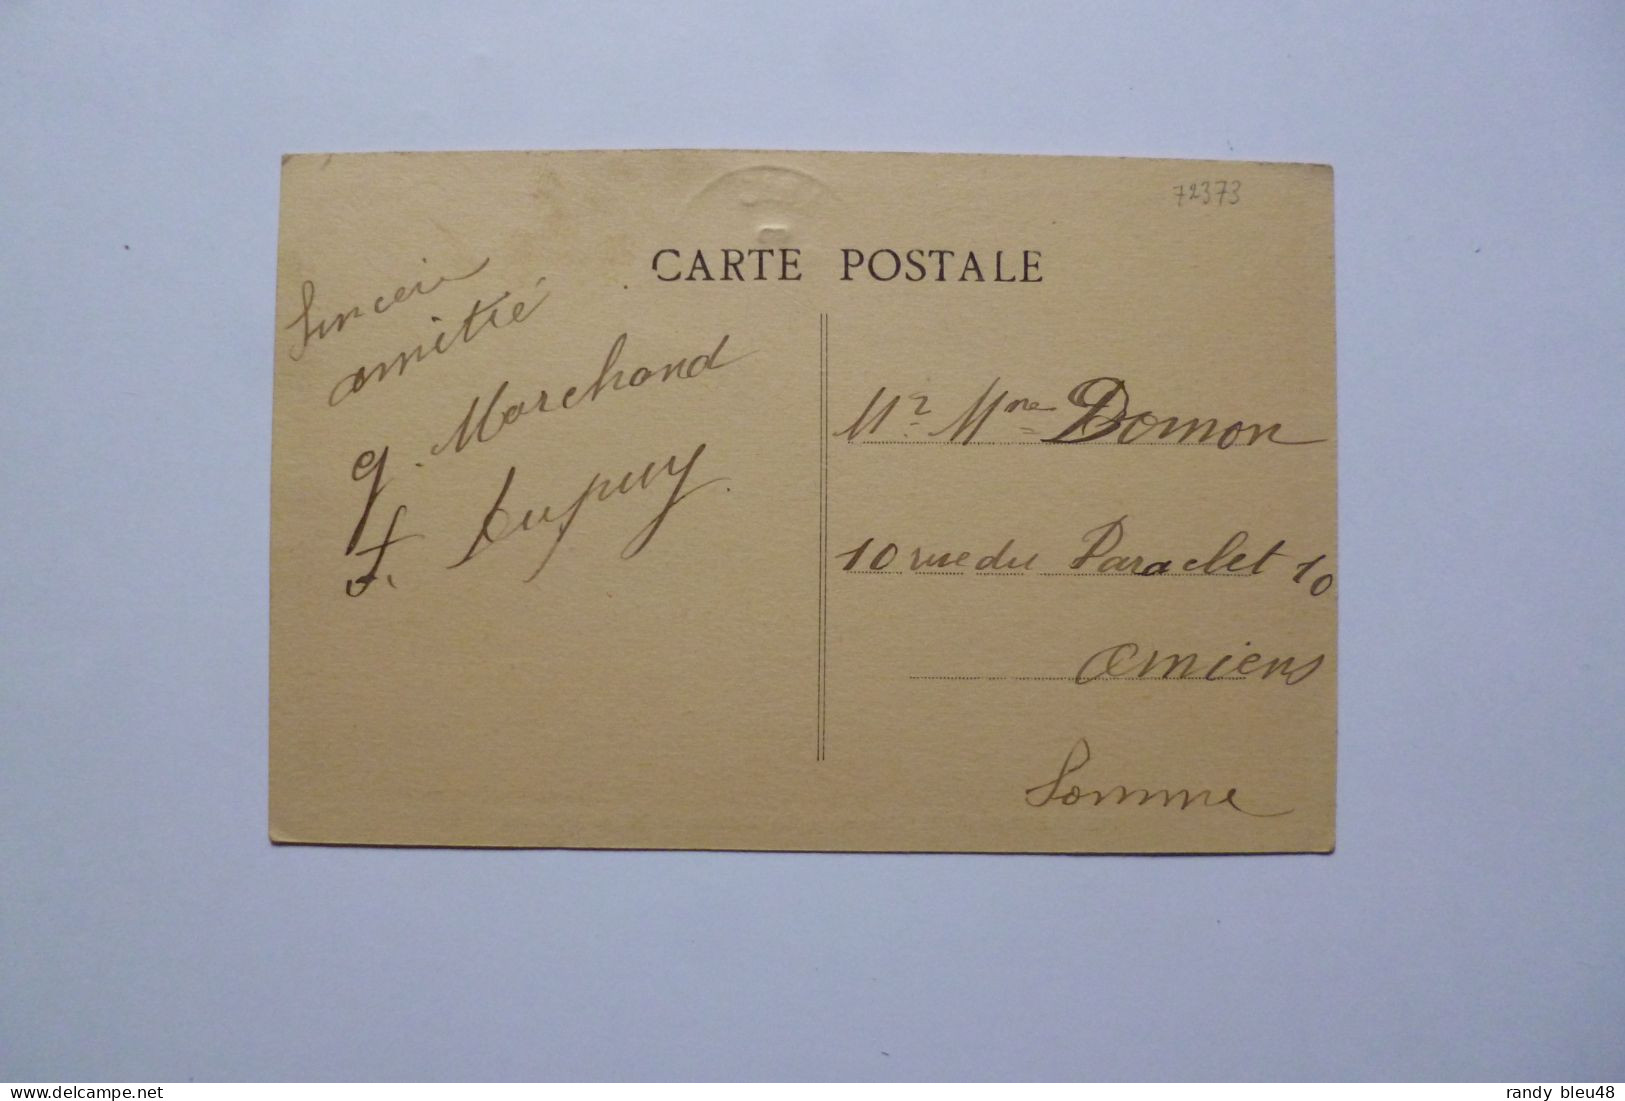 72373
CARTE POSTALE
Sincère
amitié
G. Marchand
F. Dupuy
Mr Mme Domon
10 rue du Paraclet 10
Amiens
Somme
randy bleu48